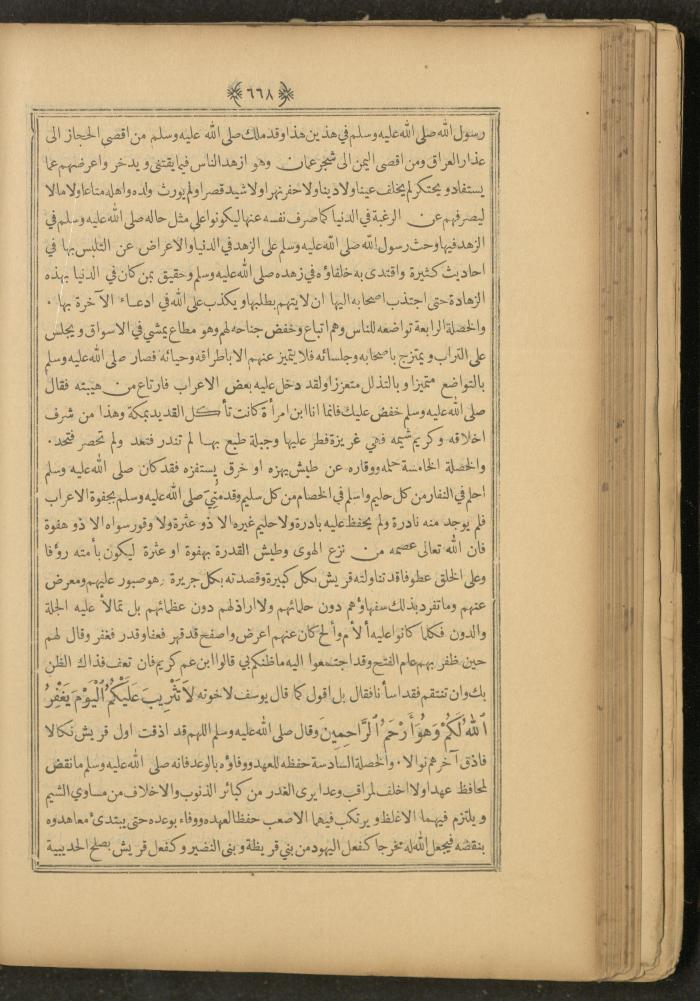 ٦٦٨
رسول الله صلى الله عليه وسلم في هذين هذا وقد ملك صلى الله عليه وسلم من اقصى الحجاز الى
عذار العراق ومن اقصى اليمن الى شحر عمان وهو ازهد الناس فيما يقتنى ويدخر واعرضهم عما
يستفاد ويحتكر لم يخلف عينا ولا دينا ولا حفر نهرا ولا شيد قصرا ولم يورث ولده واهله متاعا ولا مالا
ليصرفهم عن الرغبة في الدنيا كما صرف نفسه عنها ليكونوا على مثل حاله صلى الله عليه وسلم في
الزهد فيها وحث رسول الله صلى الله عليه وسلم على الزهد في الدنيا والاعراض عن التلبس بها في
احاديث كثيرة واقتدى به خلفاؤه في زهده صلى الله عليه وسلم وحقيق بمن كان في الدنيا بهذه
الزهادة حتى اجتذب اصحابه اليها ان لا يتهم بطلبها ويكذب على الله في ادعاء الآخرة بها ٠
والخصلة الرابعة تواضعه للناس وهم اتباع وخفض جناحه لهم وهو مطاع يمشي في الاسواق ويجلس
على التراب ويمتزج باصحابه وجلسائه فلا يتميز عنهم الا باطراقه وحيائه فصار صلى الله عليه وسلم
بالتواضع متميزا وبالتذلل متعززا ولقد دخل عليه بعض الاعراب فارتاع من هيبته فقال
صلى الله عليه وسلم خفض عليك فانما انا ابن امرأة كانت تأكل القديد بمكة وهذا من شرف
اخلاقه وكريم شيمه فهي غريزة فطر عليها وجبلة طبع بها لم تندر فتعد ولم تحصر فتحد ٠
والخصلة الخامسة حلمه ووقاره عن طيش يهزه او خرق يستفزه فقد كان صلى الله عليه وسلم
احلم في النفار من كل حليم واسلم في الخصام من كل سليم وقد مُنِيَ صلى الله عليه وسلم بجفوة الاعراب
فلم يوجد منه نادرة ولم يحفظ عليه بادرة ولا حليم غيره الا ذو عثرة ولا وقور سواه الا ذو هفوة
فان الله تعالى عصمه من نزع الهوى وطيش القدرة بهفوة او عثرة ليكون بأمته رؤفا
وعلى الخلق عطوفا قد تناولته قريش بكل كبيرة وقصدته بكل جريرة وهو صبور عليهم ومعرض
عنهم وما تفرد بذلك سفهاؤهم دون حلمائهم ولا اراذلهم دون عظمائهم بل تمالأ عليه الجلة
والدون فكلما كانوا عليه ألأم وألح كان عنهم اعرض واصفح قد قهر فعفا وقدر فغفر وقال لهم
حين ظفر بهم عام الفتح وقد اجتمعوا اليه ما ظنكم بي قالوا ابن عم كريم فان تعف فذاك الظن
بك وان تنتقم فقد اسأنا فقال بل اقول كما قال يوسف لاخوته لَا تَثْرِيبَ عَلَيْكُمُ ٱلْيَوْمَ يَغْفِرُ
ٱللَّهُ لَكُمْ وَهُوَ أَرْحَمُ ٱلرَّاحِمِينَ وقال صلى الله عليه وسلم اللهم قد اذقت اول قريش نكالا
فاذق آخرهم نوالا ٠ والخصلة السادسة حفظه للعهد ووفاؤه بالوعد فانه صلى الله عليه وسلم ما نقض
لمحافظ عهدا ولا اخلف لمراقب وعدا يرى الغدر من كبائر الذنوب والاخلاف من مساوي الشيم
ويلتزم فيهما الاغلظ ويرتكب فيهما الاصعب حفظا لعهده ووفاء بوعده حتى يبتدئ معاهدوه
بنقضه فيجعل الله له مخرجا كفعل اليهود من بني قريظة وبني النضير وكفعل قريش بصلح الحديبية